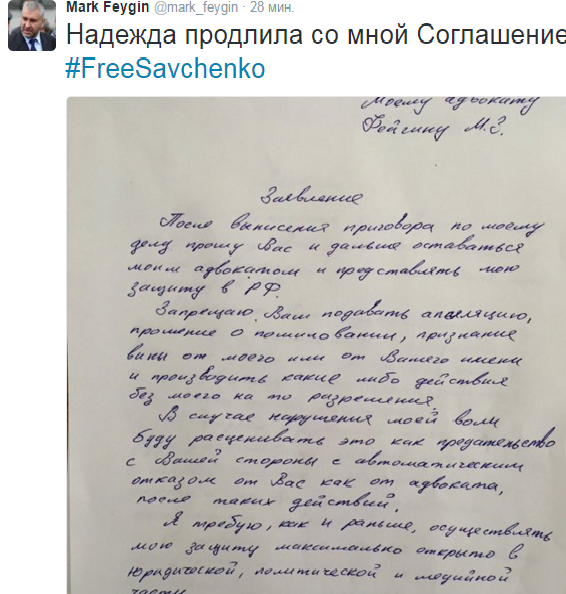 Mark Feygin @mark_feygin · 28 мин.
Надежда продлила со мной Соглашение
#FreeSavchenko
Моему адвокату
Фейгину М.З.
Заявление
После вынисения приговора по моему
делу прошу Вас и дальше оставаться
моим адвокатом и представлять мою
защиту в РФ.
Запрещаю Вам подавать апеляцию,
прошение о помиловании, признание
вины от моего или от Вашего имени
и производить какие либо действия
без моего на то разрешения.
В случае нарушения моей воли
буду расценивать это как предательство
с Вашей стороны с автоматическим
отказом от Вас как от адвоката,
после таких действий.
Я требую, как и раньше, осуществлять
мою защиту максимально открыто в
юридической, политической и медийной
части